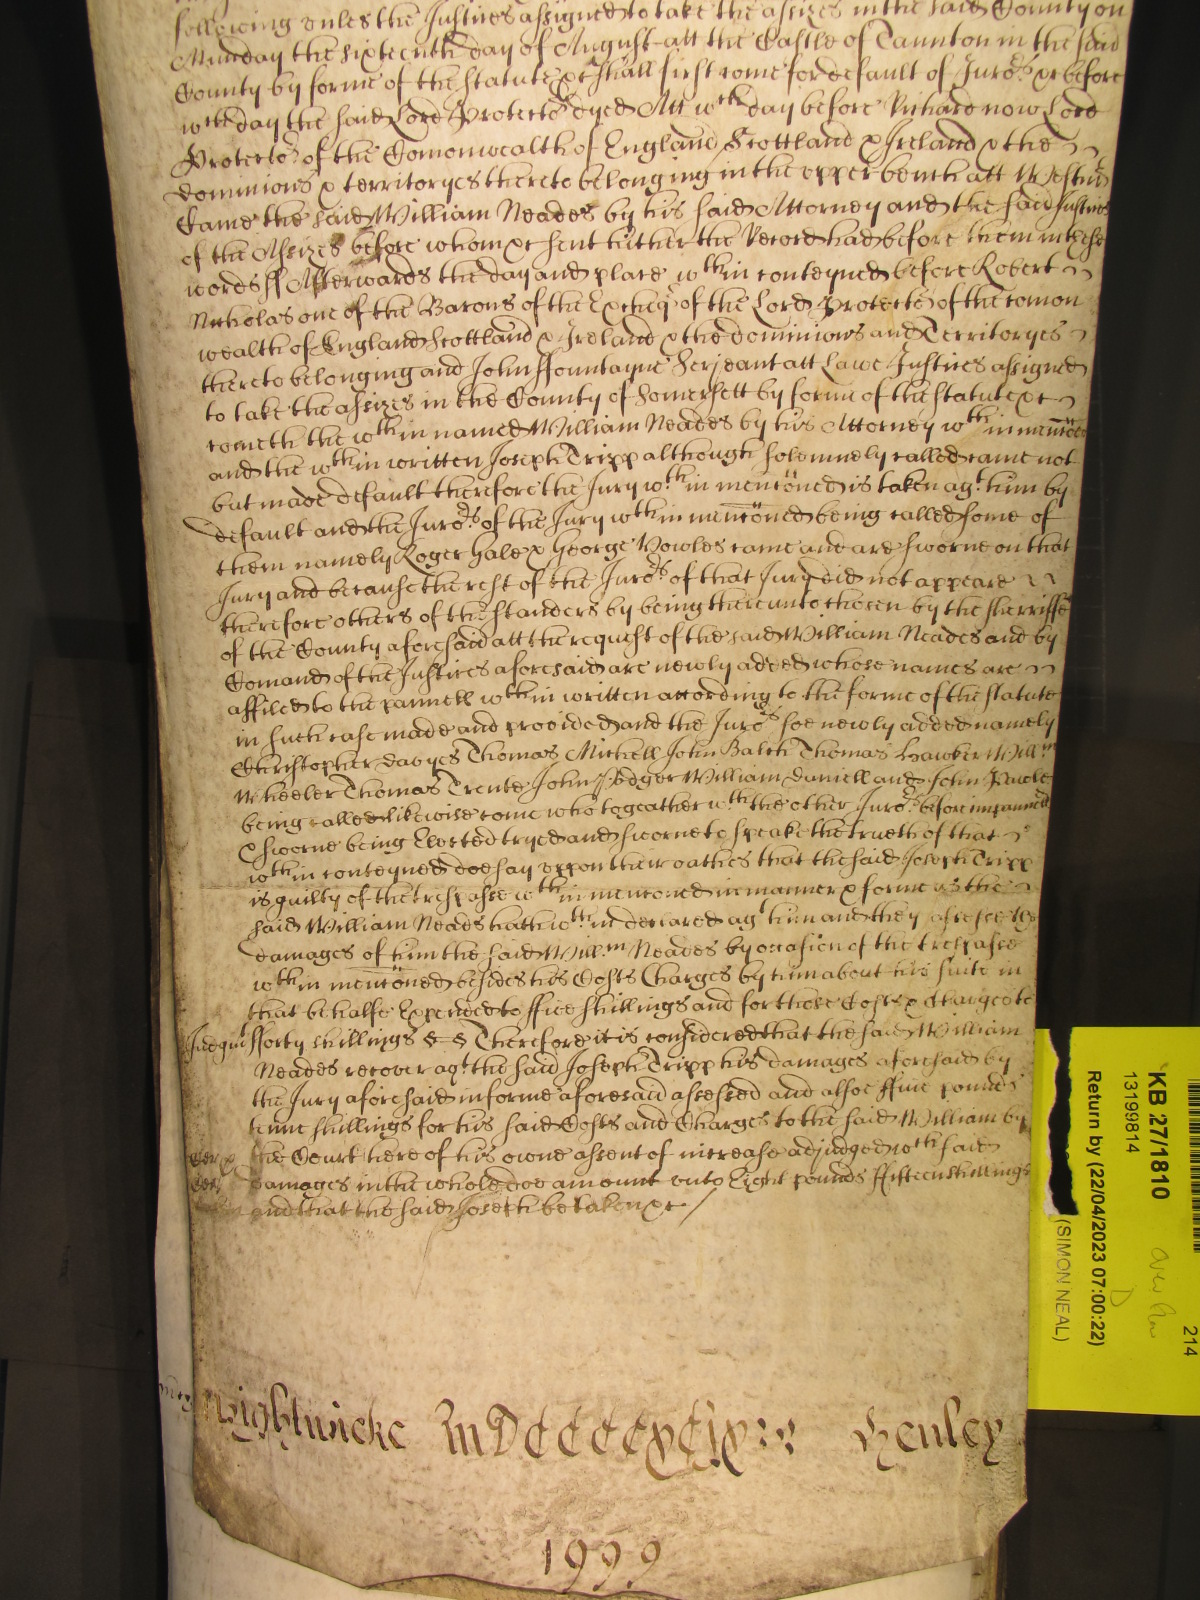 following unles the Justices assigned to take the assizes in the said County on
Munday the sixteenth day of August att the Castle of Taunton in the said
County by forme of the Statute &c shall first come for default of Juro.rs &c before
w.ch day the said Lord Protecto.r dyed Att w.ch day before Richard now Lord
Protecto.r of the Comonwealth of England Scottland & Ireland & the
dominions & territoryes thereto belonging in the upper bench att Westm.r
Came the said William Neades by his said Attorney and the said Justices
of the Assizes before whom &c sent hither the Record had before them in these
words ff Afterwards the day and place w.thin conteyned before Robert
Nicholas one of the Barons of the Excheq.r of the Lord Protecto.r of the comon
wealth of England Scottland & Ireland & the dominions and Territoryes
thereto belonging and John ffountayne Serjeant att Lawe Justices assigned
to take the assizes in the County of Somersett by forme of the Statute &c
cometh the w.thin named William Neades by his Attorney w.thin menc̃oed
and the w.thin written Joseph Tripp although solemnely called came not
but made default therefore the Jury w.thin menc̃oned is taken ag.t him by
default and the Juro.rs of the Jury w.thin menc̃oned being called some of
them namely Roger Hale & George Vowles came and are sworne on that
Jury and because the rest of the Juro.rs of that Jury did not appeare
therefore others of the standers by being thereunto chosen by the Sherriffe
of the County aforesaid att the request of the said William Neades and by
Comand of the Justices aforesaid are newly added whose names are
affiled to the pannell w.thin written according to the forme of the statute
in such case made and provided and the Juro.rs soe newly added namely
Christopher davyes Thomas Michell John Balch Thomas Hawker Will.m
Wheeler Thomas Trente John Rodger William daniell and John
being called likewise come who togeather w.th the other Juro.rs before impannelled
& sworne being Elected tryed and sworne to speake the trueth of that
w.thin conteyned doe say uppon their oathes that the said Joseph Tripp
is guilty of the trespasse w.thin menc̃oned in manner & forme as the
said William Neads hath w.thin declared ag.t him and they assesse the
damages of him the said Will.m Neades by occasion of the trespasse
w.thin menc̃oned besides his Costs Charges by him about his suite in
that behalfe Expended to ffive shillings and for those Costs & Charges to
Judgm.t fforty shillings Therefore it is considered that the said William
Neades recover ag.t the said Joseph Tripp his damages aforesaid by
the Jury aforesaid in forme aforesaid assessed and alsoe ffive pounds
tenne shillings for his said Costs and Charges to the said William by
the Court here of his owne assent of increase adjudged w.ch said
damages in the whole doe amount unto Eight pounds ffifteen shillings
and that the said Joseph be taken &c /
Wightwicke Henley
1999
KB 27/1810
13199814
Return by (22/04/2023 07:00:22)
(SIMON NEAL)
214